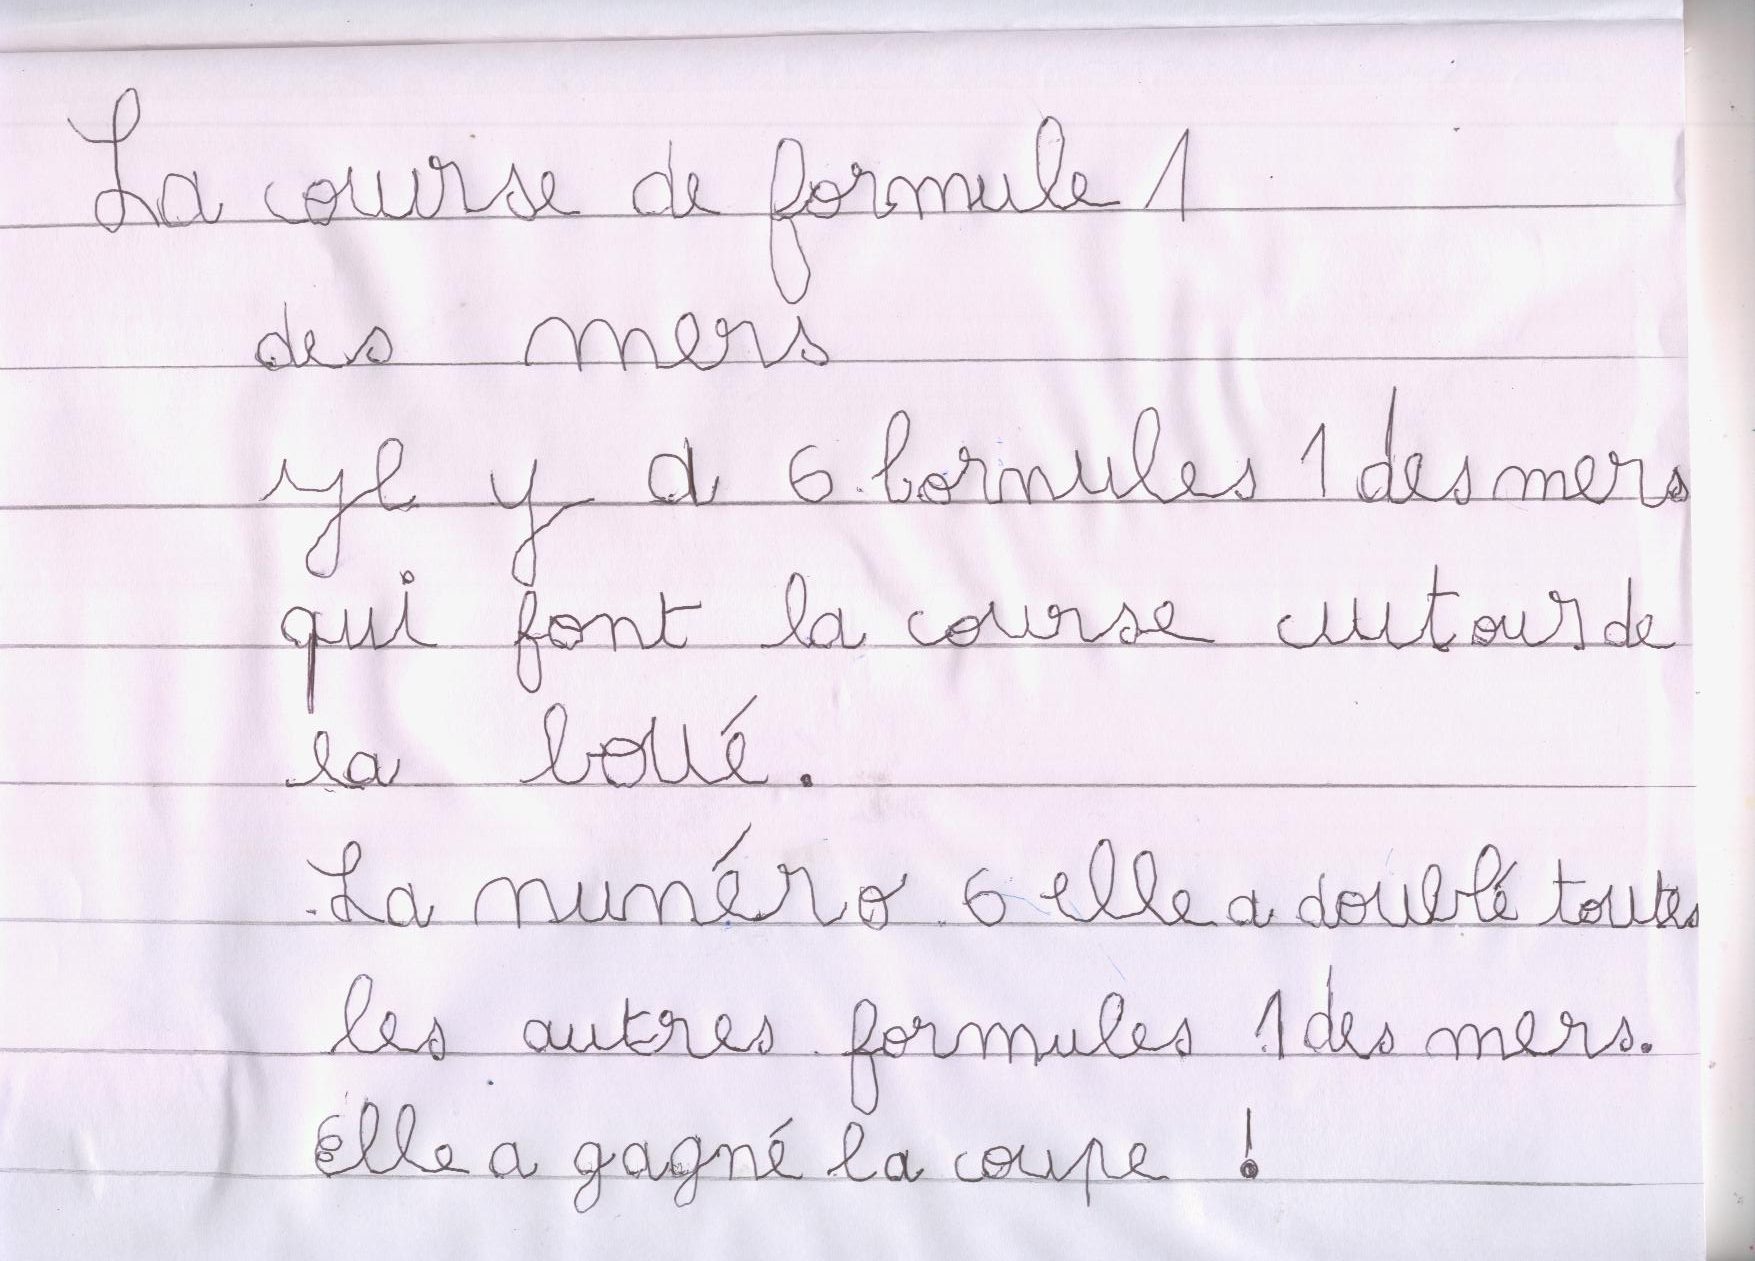 La course de formule 1
des mers
yl y a 6 formules 1 des mers
qui font la course autour de
la boué.
La numéro 6 elle a doublé toutes
les autres formules 1 des mers.
Elle a gagné la coupe !